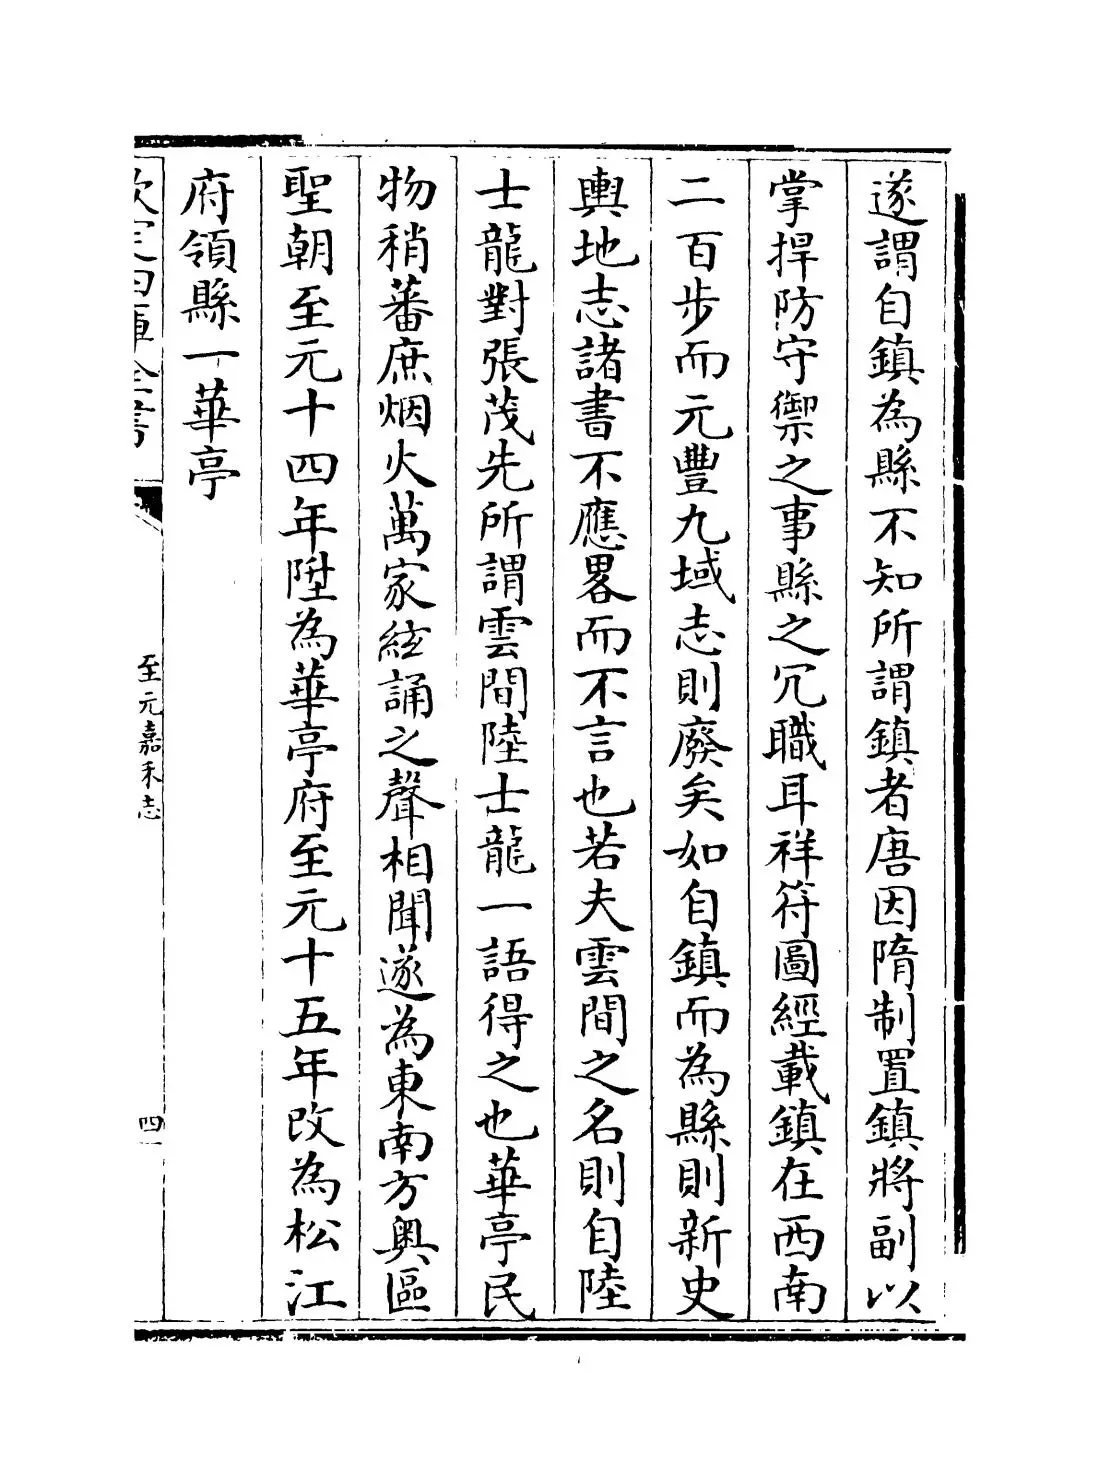 遂謂自鎮為縣不知所謂鎮者唐因隋制置鎮將副以
掌捍防守禦之事縣之冗職耳祥符圖經載鎮在西南
二百步而元豐九域志則廢矣如自鎮而為縣則新史
輿地志諸書不應畧而不言也若夫雲間之名則自陸
士龍對張茂先所謂雲間陸士龍一語得之也華亭民
物稍蕃庶烟火萬家絃誦之聲相聞遂為東南方奥區
聖朝至元十四年陞為華亭府至元十五年改為松江
府領縣一華亭
欽定四庫全書
至元嘉禾志
四